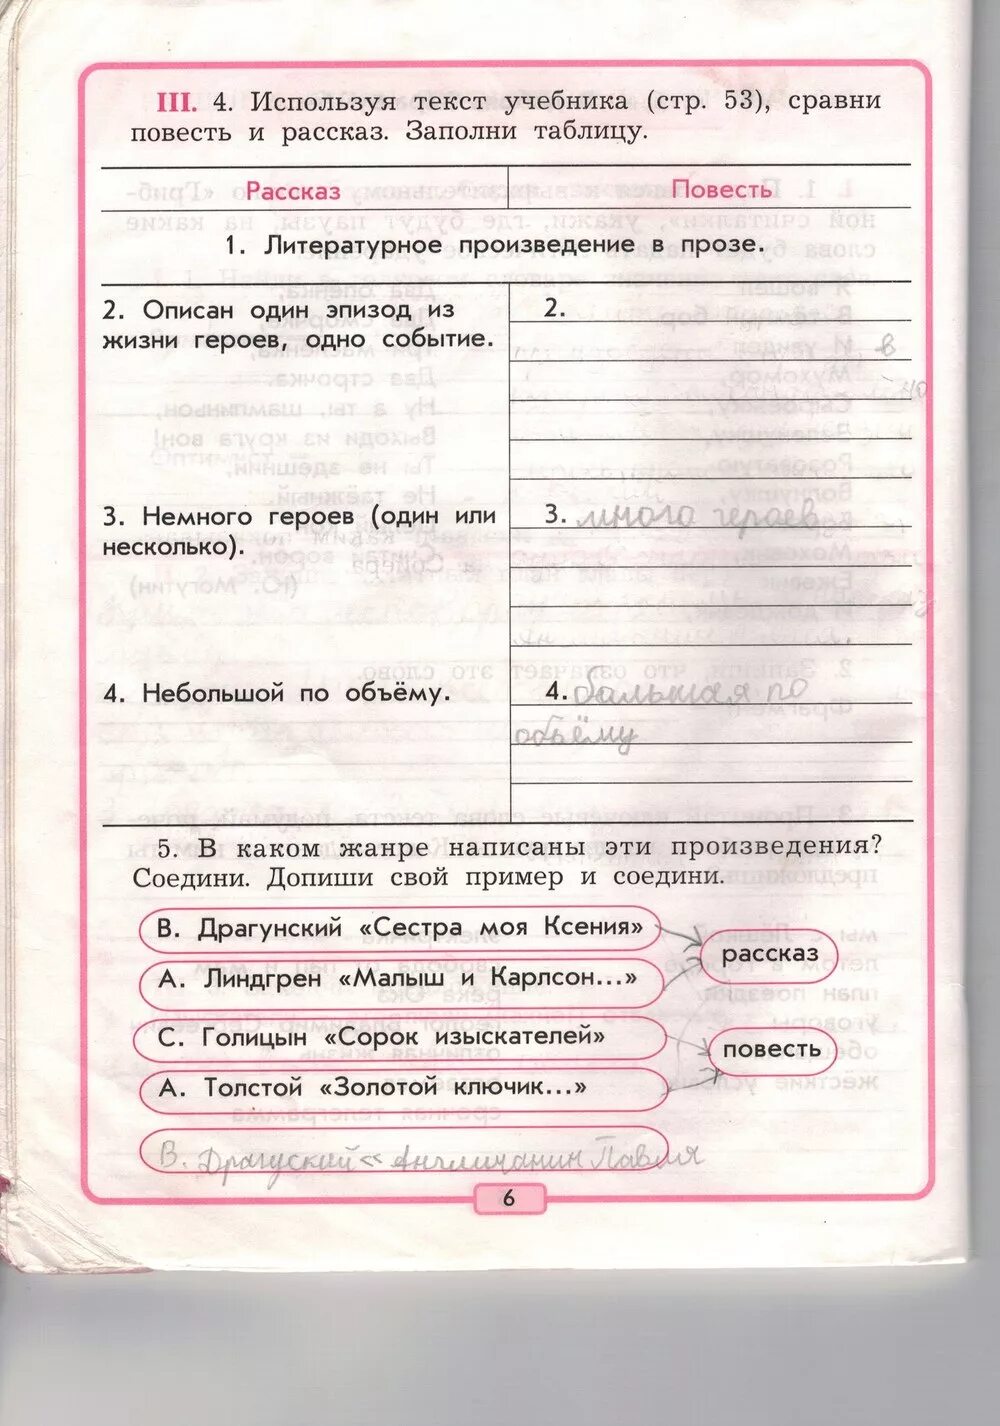 III. 4. Используя текст учебника (стр. 53), сравни
повесть и рассказ. Заполни таблицу.
Рассказ
Повесть
1. Литературное произведение в прозе.
2. Описан один эпизод из
жизни героев, одно событие.
2.
3. Немного героев (один или
несколько).
3. много героев
4. Небольшой по объёму.
4. большая по
объёму
5. В каком жанре написаны эти произведения?
Соедини. Допиши свой пример и соедини.
В. Драгунский «Сестра моя Ксения»
А. Линдгрен «Малыш и Карлсон...»
рассказ
С. Голицын «Сорок изыскателей»
А. Толстой «Золотой ключик...»
повесть
В. Драгуский «Англичанин Павля
6